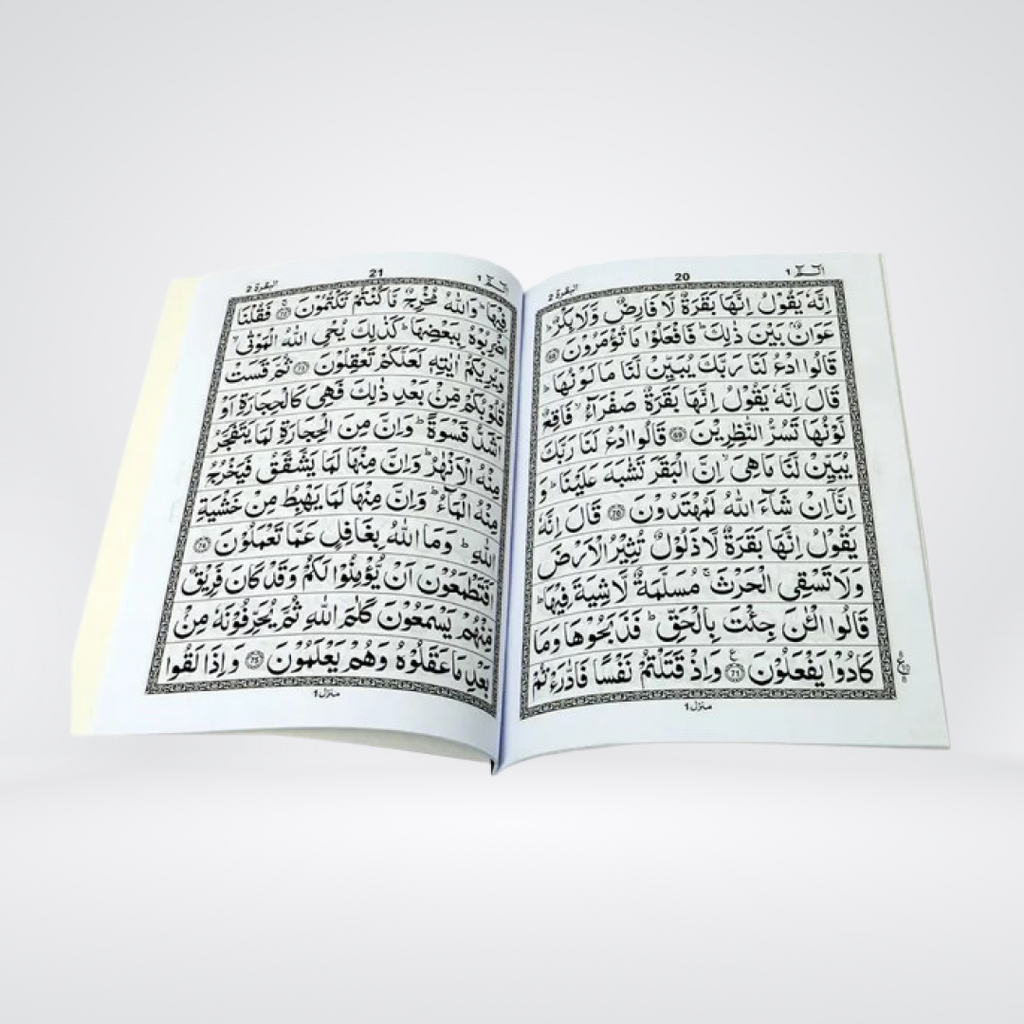 البقرة 2
20
الٓمّٓ 1
اِنَّهٗ يَقُوْلُ اِنَّهَا بَقَرَةٌ لَّا فَارِضٌ وَّلَا بِكْرٌ ؕ
عَوَانٌۢ بَيْنَ ذٰلِكَ ؕ فَافْعَلُوْا مَا تُؤْمَرُوْنَ ﴿68﴾
قَالُوا ادْعُ لَنَا رَبَّكَ يُبَيِّنْ لَّنَا مَا لَوْنُهَا ؕ
قَالَ اِنَّهٗ يَقُوْلُ اِنَّهَا بَقَرَةٌ صَفْرَآءُ ۙ فَاقِعٌ
لَّوْنُهَا تَسُرُّ النّٰظِرِيْنَ ﴿69﴾ قَالُوا ادْعُ لَنَا رَبَّكَ
يُبَيِّنْ لَّنَا مَا هِيَ ۙ اِنَّ الْبَقَرَ تَشٰبَهَ عَلَيْنَا ؕ وَ
اِنَّاۤ اِنْ شَآءَ اللّٰهُ لَمُهْتَدُوْنَ ﴿70﴾ قَالَ اِنَّهٗ
يَقُوْلُ اِنَّهَا بَقَرَةٌ لَّا ذَلُوْلٌ تُثِيْرُ الْاَرْضَ
وَلَا تَسْقِى الْحَرْثَ ۚ مُسَلَّمَةٌ لَّا شِيَةَ فِيْهَا ؕ
قَالُوا الْـٰٔنَ جِئْتَ بِالْحَقِّ ؕ فَذَبَحُوْهَا وَمَا
كَادُوْا يَفْعَلُوْنَ ﴿71﴾ ع وَاِذْ قَتَلْتُمْ نَفْسًا فَادّٰرَءْتُمْ
منزل 1
البقرة 2
21
الٓمّٓ 1
فِيْهَا ؕ وَاللّٰهُ مُخْرِجٌ مَّا كُنْتُمْ تَكْتُمُوْنَ ﴿72﴾ فَقُلْنَا
اضْرِبُوْهُ بِبَعْضِهَا ؕ كَذٰلِكَ يُحْىِ اللّٰهُ الْمَوْتٰى ۙ
وَيُرِيْكُمْ اٰيٰتِهٖ لَعَلَّكُمْ تَعْقِلُوْنَ ﴿73﴾ ثُمَّ قَسَتْ
قُلُوْبُكُمْ مِّنْۢ بَعْدِ ذٰلِكَ فَهِىَ كَالْحِجَارَةِ اَوْ
اَشَدُّ قَسْوَةً ؕ وَاِنَّ مِنَ الْحِجَارَةِ لَمَا يَتَفَجَّرُ
مِنْهُ الْاَنْهٰرُ ؕ وَاِنَّ مِنْهَا لَمَا يَشَّقَّقُ فَيَخْرُجُ
مِنْهُ الْمَآءُ ؕ وَاِنَّ مِنْهَا لَمَا يَهْبِطُ مِنْ خَشْيَةِ
اللّٰهِ ؕ وَمَا اللّٰهُ بِغَافِلٍ عَمَّا تَعْمَلُوْنَ ﴿74﴾
اَفَتَطْمَعُوْنَ اَنْ يُّؤْمِنُوْا لَكُمْ وَقَدْ كَانَ فَرِيْقٌ
مِّنْهُمْ يَسْمَعُوْنَ كَلٰمَ اللّٰهِ ثُمَّ يُحَرِّفُوْنَهٗ مِنْۢ
بَعْدِ مَا عَقَلُوْهُ وَهُمْ يَعْلَمُوْنَ ﴿75﴾ وَاِذَا لَقُوا
منزل 1